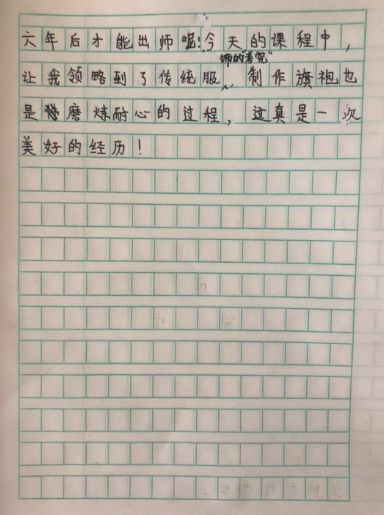 六年后才能出师呢!今天的课程中,
让我领略到了传统服饰的"考究",制作旗袍也
是磨炼耐心的过程,这真是一次
美好的经历!